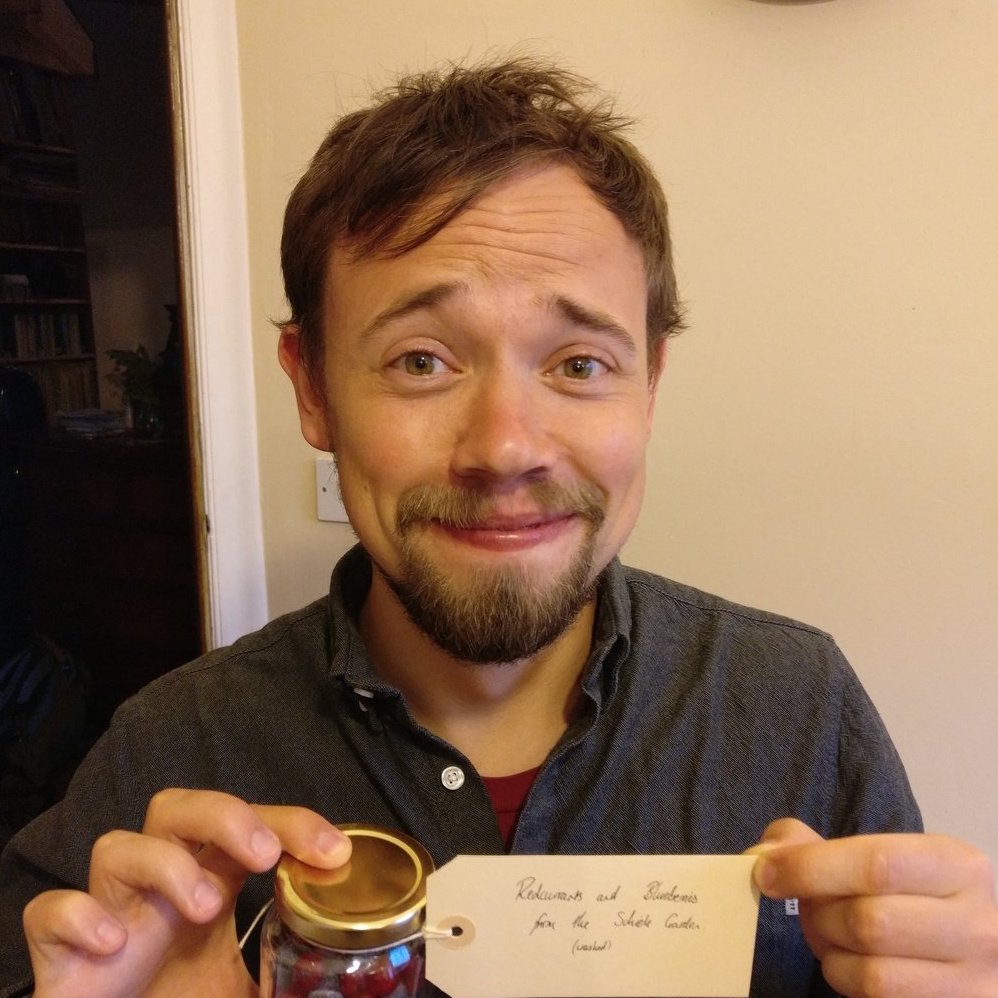 Redcurrants and Blueberries
from the Schiele Garden
(washed)